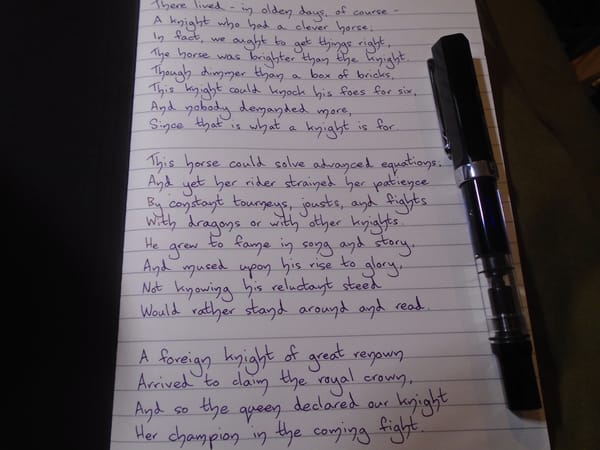 There lived - in olden days, of course -
A knight who had a clever horse.
In fact, we ought to get things right,
The horse was brighter than the knight.
Though dimmer than a box of bricks,
This knight could knock his foes for six,
And nobody demanded more,
Since that is what a knight is for.
This horse could solve advanced equations,
And yet her rider strained her patience
By constant tourneys, jousts, and fights
With dragons or with other knights.
He grew to fame in song and story,
And mused upon his rise to glory,
Not knowing his reluctant steed
Would rather stand around and read.
A foreign knight of great renown
Arrived to claim the royal crown,
And so the queen declared our knight
Her champion in the coming fight.